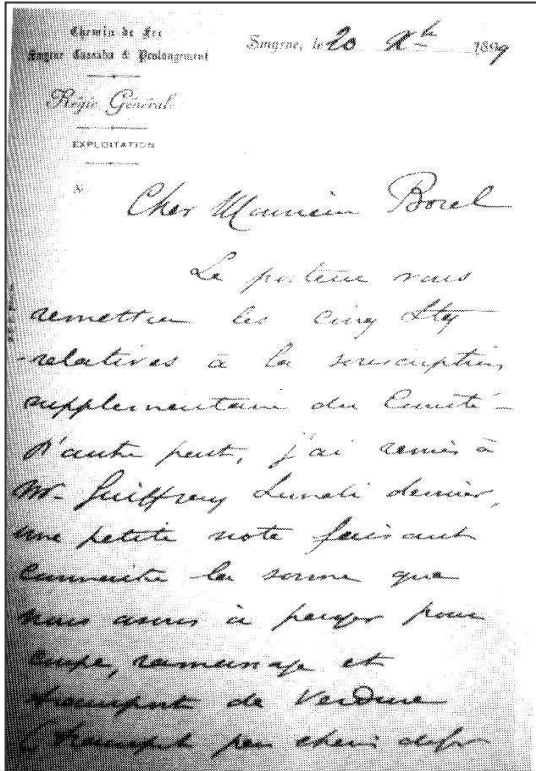 Chemin de Fer
Smyrne Cassaba & Prolongement
Régie Générale
EXPLOITATION
Smyrne, le 20 Xbre 1899
N.
Cher Monsieur Borel
Le porteur vous
remettra les cinq Ltq
relatives à la souscription
supplémentaire du Comité -
D'autre part, j'ai remis à
Mr. Guiffray Lundi dernier,
une petite note faisant
connaitre la somme que
nous avons à payer pour
coupe, ramassage et
transport de Verdure
(transport par chemin de fer